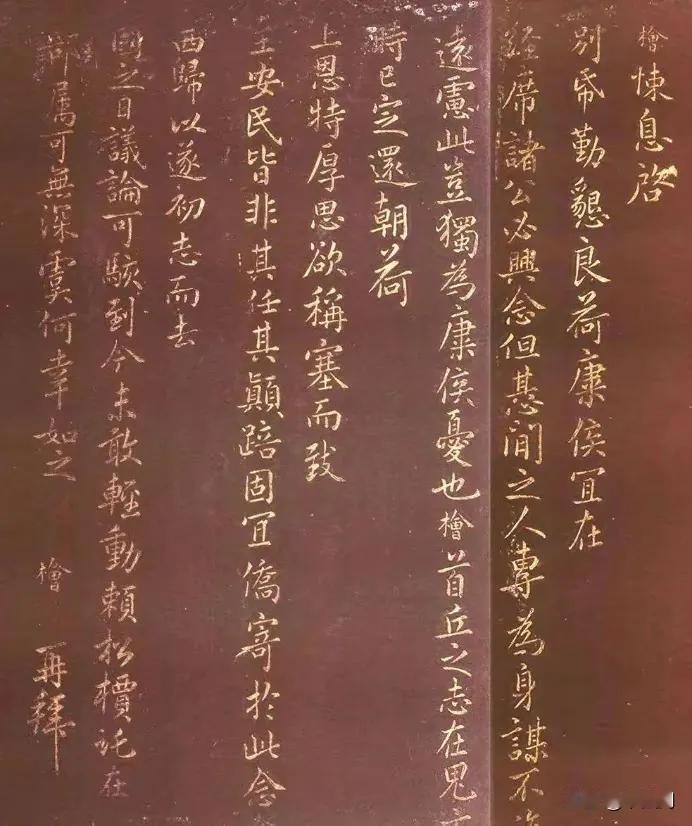 檜悚息啓
別紙勤懇良荷康侯宜在
經席諸公必興念但惎間之人專為身謀不
遠慮此豈獨為康侯憂也檜首丘之志在兒
時已定還朝荷
上恩特厚思欲稱塞而致
主安民皆非其任其顛踣固宜僑寄於此念
西歸以遂初志而去
國之日議論可駭到今未敢輕動賴松檟託在
鄰属可無深虞何幸如之 檜 再拜